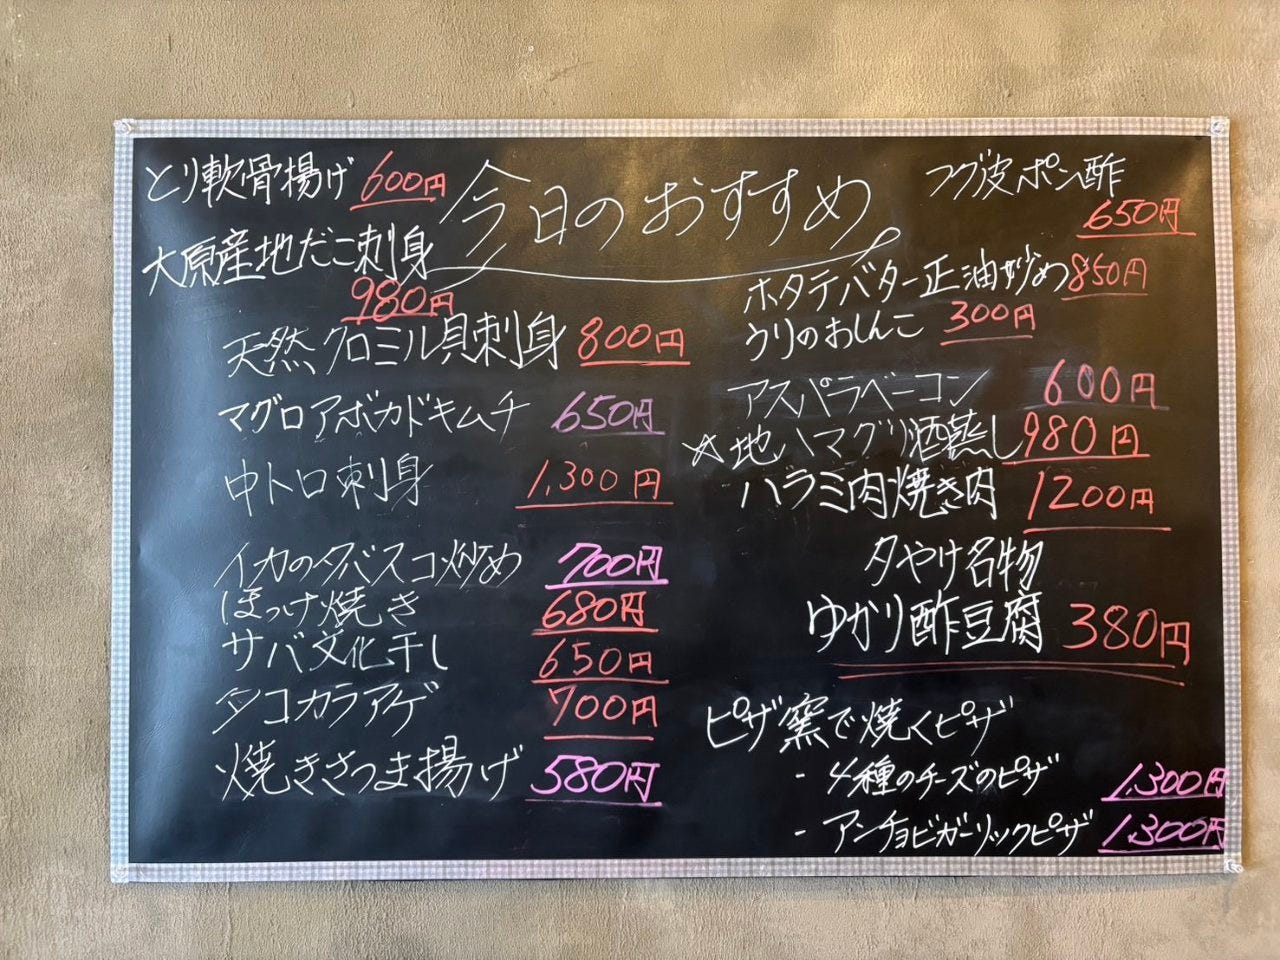 今日のおすすめ
とり軟骨揚げ 600円
大原産地だこ刺身
980円
天然クロミル貝刺身 800円
マグロアボカドキムチ 650円
中トロ刺身 1,300円
イカのタバスコ炒め 700円
ほっけ焼き 680円
サバ文化干し 650円
タコカラアゲ 700円
焼きさつま揚げ 580円
フグ皮ポン酢
650円
ホタテバター正油炒め 850円
ウリのおしんこ 300円
アスパラベーコン 600円
☆地ハマグリ酒蒸し 980円
ハラミ肉焼き肉 1200円
夕やけ名物
ゆかり酢豆腐 380円
ピザ窯で焼くピザ
- 4種のチーズのピザ 1,300円
- アンチョビガーリックピザ 1,300円